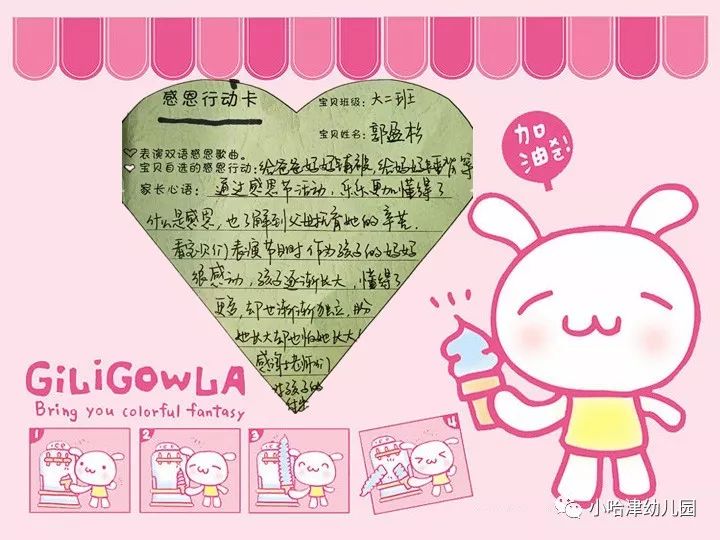 感恩行动卡
宝贝班级：大二班
宝贝姓名：郭盈杉
表演双语感恩歌曲。
宝贝自选的感恩行动：给爸爸妈妈铺被，给妈妈捶背等
家长心语：通过感恩节活动，乐乐更加懂得了
什么是感恩，也了解到父母抚育她的辛苦.
看宝贝们表演节目时作为孩子的妈妈
很感动，孩子逐渐长大，懂得了
更多，却也渐渐独立，盼
她长大却也怕她长大
感谢老师们
对孩子的
付出
加油
GiLiGOWLA
Bring you colorful fantasy
1
2
3
4
ice
小哈津幼儿园